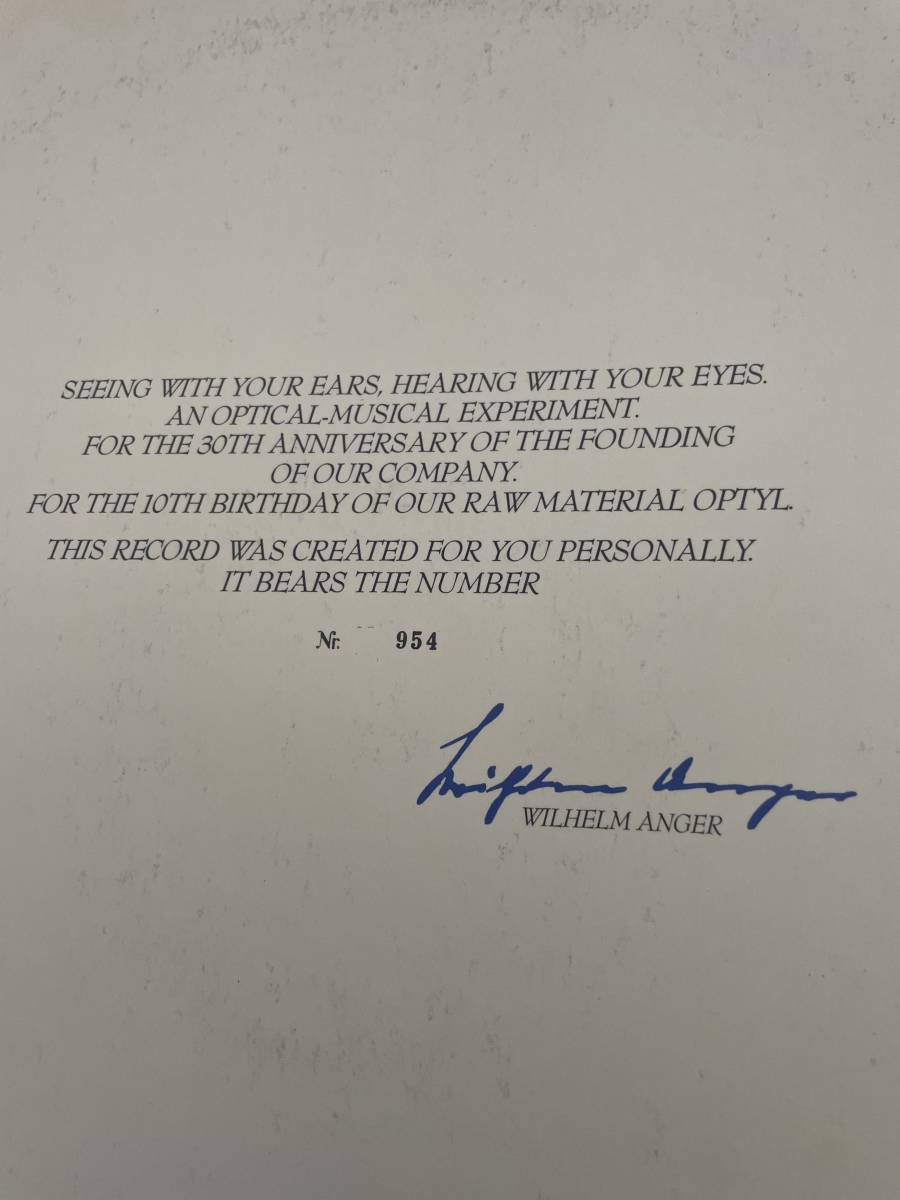 SEEING WITH YOUR EARS, HEARING WITH YOUR EYES.
AN OPTICAL-MUSICAL EXPERIMENT.
FOR THE 30TH ANNIVERSARY OF THE FOUNDING
OF OUR COMPANY.
FOR THE 10TH BIRTHDAY OF OUR RAW MATERIAL OPTYL.
THIS RECORD WAS CREATED FOR YOU PERSONALLY.
IT BEARS THE NUMBER
Nr. 954
Wilhelm Anger
WILHELM ANGER